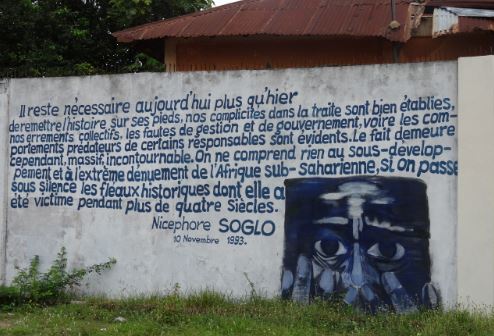 Il reste nécessaire aujourd'hui plus qu'hier
de remettre l'histoire sur ses pieds, nos complicités dans la traite sont bien établies,
nos errements collectifs, les fautes de gestion et de gouvernement, voire les com-
portements prédateurs de certains responsables sont évidents. Le fait demeure
cependant, massif, incontournable. On ne comprend rien au sous-develop-
pement et à l'extrême dénuement de l'Afrique sub-saharienne, si on passe
sous silence les fleaux historiques dont elle a
été victime pendant plus de quatre siècles.
Nicephore SOGLO
10 Novembre 1993.